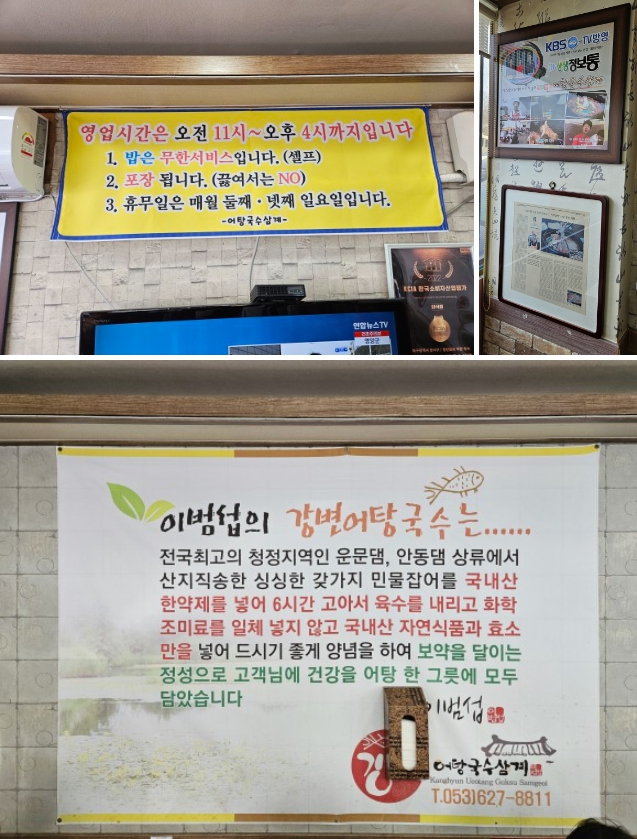 영업시간은 오전 11시~오후 4시까지입니다
1. 밥은 무한서비스입니다. (셀프)
2. 포장 됩니다. (끓여서는 NO)
3. 휴무일은 매월 둘째·넷째 일요일입니다.
-어탕국수삼계-
연합뉴스TV
영양군
2022
KCIA 한국소비자산업평가
KBS TV방영
정보통
이범섭의 강변어탕국수는......
전국최고의 청정지역인 운문댐, 안동댐 상류에서
산지직송한 싱싱한 갖가지 민물잡어를 국내산
한약제를 넣어 6시간 고아서 육수를 내리고 화학
조미료를 일체 넣지 않고 국내산 자연식품과 효소
만을 넣어 드시기 좋게 양념을 하여 보약을 달이는
정성으로 고객님에 건강을 어탕 한 그릇에 모두
담았습니다
이범섭
강
어탕국수삼계
Kangbyun Ueotang Guksu Samgeoi
T.053)627-8811